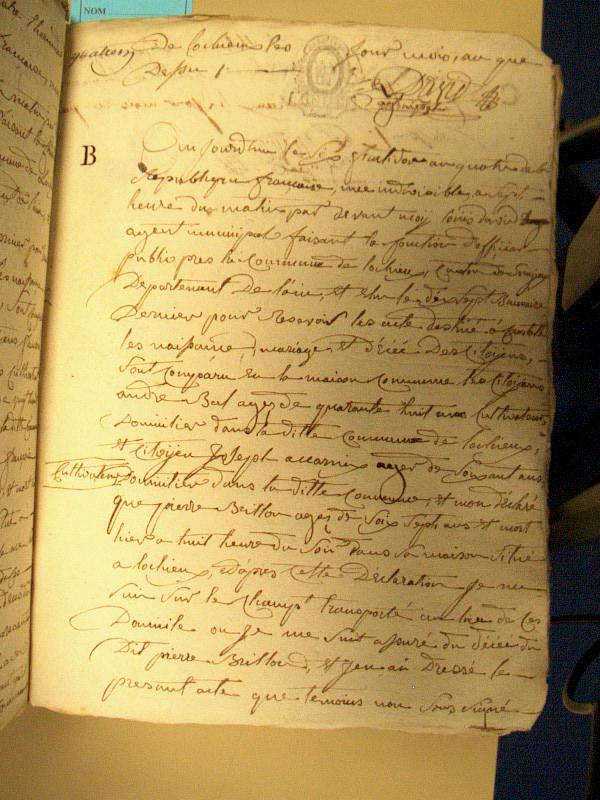 NOM
de lochieu les jour mois, an que
Dessus
David
agt municipal
B
Aujourdhui le six an quatre de la
Republique francaise, une indivisible, a sept
heure du matin par devant moy louis david
agent municipal faisant la fonction d'officier
public pres la Commune de lochieu, Canton de
Departement De l'ain, et Elu le dix sept Brumaire
Dernier pour recevoir les acte destiné a Constaté
les naissance, mariage, et décéé Des Citoyens,
sont Comparu En la maison Commune les Citoyens
andré agés de quarante huit ans Cultivateur
Domicilier dans la ditte Commune de lochieux,
et Citoyen Joseph accarier agés de Soixant ans,
Cultivateur Domicilier dans la ditte Commune, et mon déclaré
que pierre Brillon agés de Soix Sept ans Et mort
hier a huit heure du Soir Dans Sa maison Situé
a lochieu, d'apres Cette Déclaration Je me
suis Sur le Champt transporté au lieu de Ces
Domicile ou Je me suit assuré du décéé du
Dit pierre Brillon, Et Jen ai Dressé le
present acte que temoins non Sous signé